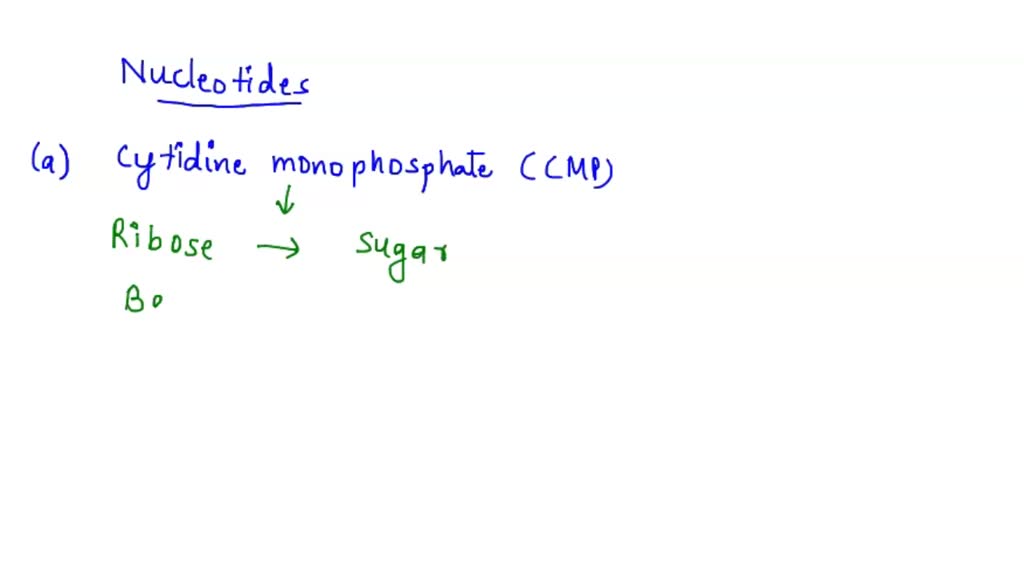 Nucleotides
(a) Cytidine monophosphate (CMP)
↓
Ribose → Sugar
Ba